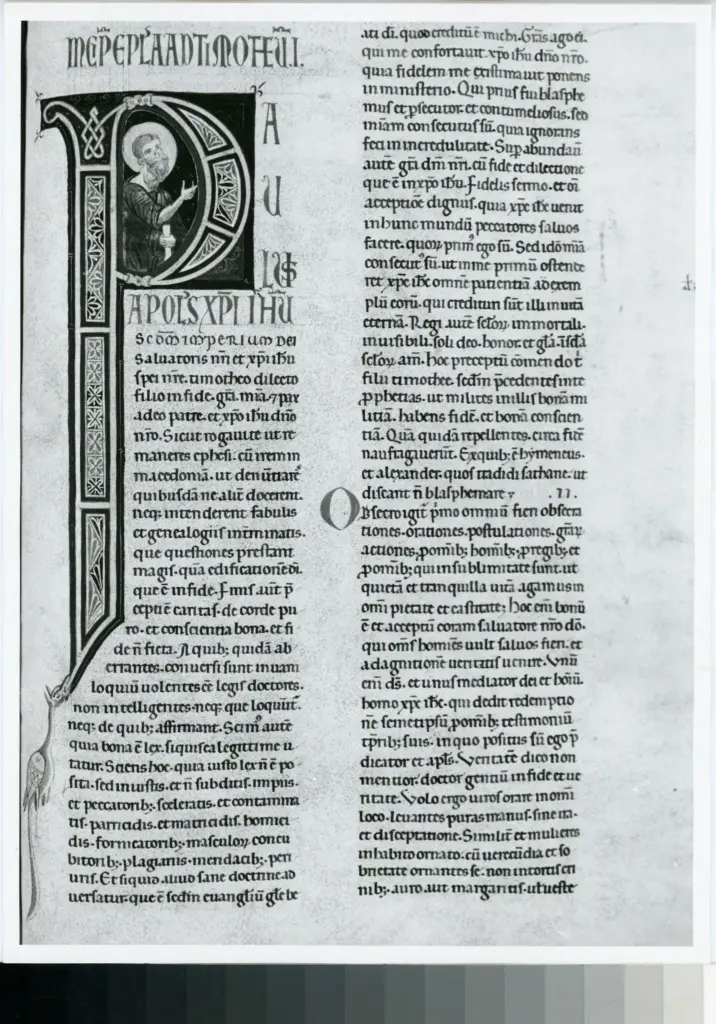 INCĒP̄EPĪAADTIMOTHEŪ.I.
PAULUS
APOLS XPI IHU
Scdm imperium dei
Saluatoris nri et xpi ihu
spei nrē. timotheo dilecto
filio in fide. gra. mia. & pax
a deo patre. et xpo ihu dno
nro. Sicut rogaui te ut re
maneres ephesi. cū irem in
macedoniā. ut denūtiares
quibusdā ne aliť docerent.
neq; intenderent fabulis
et genealogiis intminatis.
que questiones prestant
magis. quā edificationē di.
que ē in fide. Finis auť p̄
cepti ē caritas. de corde pu
ro. et conscientia bona. et fi
de n̄ ficta. A quib; quidā ab
errantes. conuersi sunt in uani
loquiū uolentes eē legis doctores.
non intelligentes. neq; que loquūt.
neq; de quib; affirmant. Scimꝰ autē
quia bona ē lex. siquis ea legittime u
tatur. Sciens hoc. quia iusto lex n̄ ē po
sita. sed iniustis. et n̄ subditis. impiis.
et peccatorib;. sceleratis. et contamina
tis. parricidis. et matricidis. homici
dis. fornicatorib;. masculoꝝ concu
bitorib;. plagiariis. mendacib;. peri
uris. Et siquid aliud sane doctrine ad
uersatur. que ē sedm euangliū glē be
ati di. quod creditū ē michi. Grās ago ei.
qui me confortauit. xpo ihu dno nro.
quia fidelem me existimauit ponens
in ministerio. Qui prius fui blasphe
mus et psecutor. et contumeliosus. sed
miam consecutus sū. quia ignorans
feci in incredulitate. Supabundau
autē grā dni nri. cū fide et dilectione
que ē in xpo ihu. Fidelis sermo. et oi
acceptiōe dignus. quia xpc ihc uenit
in hunc mundū peccatores saluos
facere. quoꝝ primꝰ ego sū. Sed ido miam
consecutꝰ sū. ut in me primū ostende
ret xpc ihc omnē patientiā ad exem
plū eorū. qui credituri sūt illi in uitā
eternā. Regi autē seloꝝ immortali.
inuisibili. soli deo. honor. et glā. in scla
seloꝝ. am. Hoc preceptū cōmendo t̄
fili timothee. sedm p̄cedentes in te
pphetias. ut milites in illis bonā mi
litiā. habens fidē. et bonā conscien
tiā. Quā quidā repellentes. circa fidē
naufragauerūt. Ex quib; ē hymeneus.
et alexander. quos tradidi sathane. ut
discant n̄ blasphemare. .II.
Obsecro igit p̄mo omniū fieri obsecra
tiones. orationes. postulationes. grāꝝ
actiones. p omib; homib;. p regib;. et
p omib; qui in sublimitate sunt. ut
quietā et tranquillā uitā agamus in
omi pietate et castitate; Hoc eni bonū
ē et acceptū coram saluatore nro dō.
qui oms homies uult saluos fieri. et
ad agnitionē ueritatis uenire. Vnus
eni ds. et unus mediator dei et hoiū.
homo xpc ihc. qui dedit redemptio
nē semetipsū p omib; testimoniū
tp̄rib; suis. in quo positus sū ego p̄
dicator et apls. Veritatē dico non
mentior. doctor gentiū in fide et ue
ritate. Volo ergo uiros orare in omi
loco. leuantes puras manus. sine ira.
et disceptatione. Similit et mulieres
in habitu ornato. cū uerecūdia et so
brietate ornantes se. non in tortis cri
nib;. aut auro. aut margaritis. ut ueste